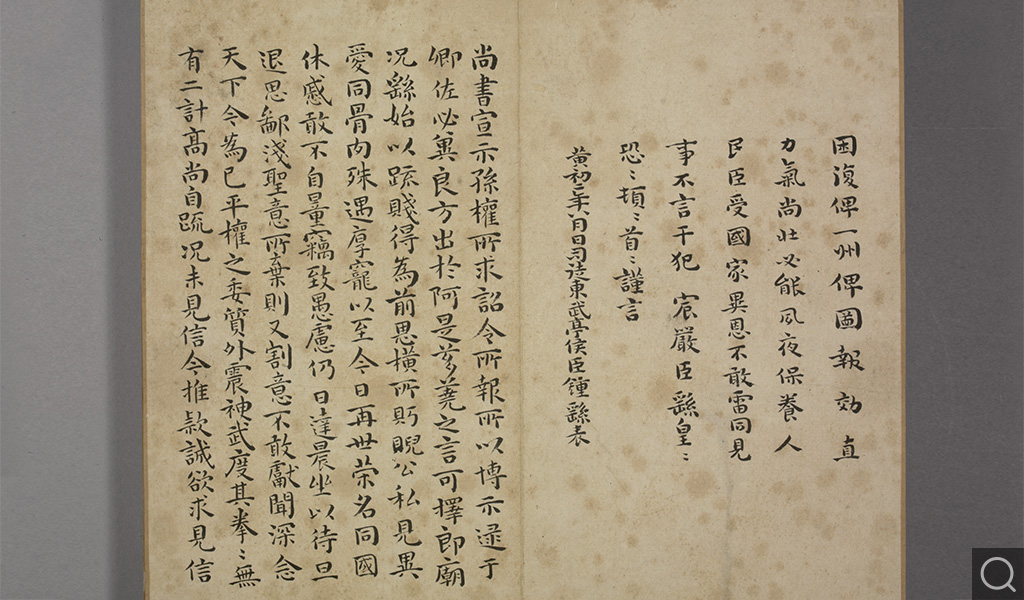 困復俾一州俾圖報効直
力氣尚壯必能夙夜保養人
民臣受國家異恩不敢雷同見
事不言干犯宸嚴臣繇皇〻
恐〻頓〻首〻謹言
黃初二年八月日司徒東武亭侯臣鍾繇表
尚書宣示孫權所求詔令所報所以博示逮于
卿佐必冀良方出於阿是芻蕘之言可擇郎廟
況繇始以疏賤得為前恩橫所眄睨公私見異
愛同骨肉殊遇厚寵以至今日再世榮名同國
休慼敢不自量竊致愚慮仍日達晨坐以待旦
退思鄙淺聖意所棄則又割意不敢獻聞深念
天下今為已平權之委質外震神武度其拳〻無
有二計高尚自疏況未見信今推款誠欲求見信